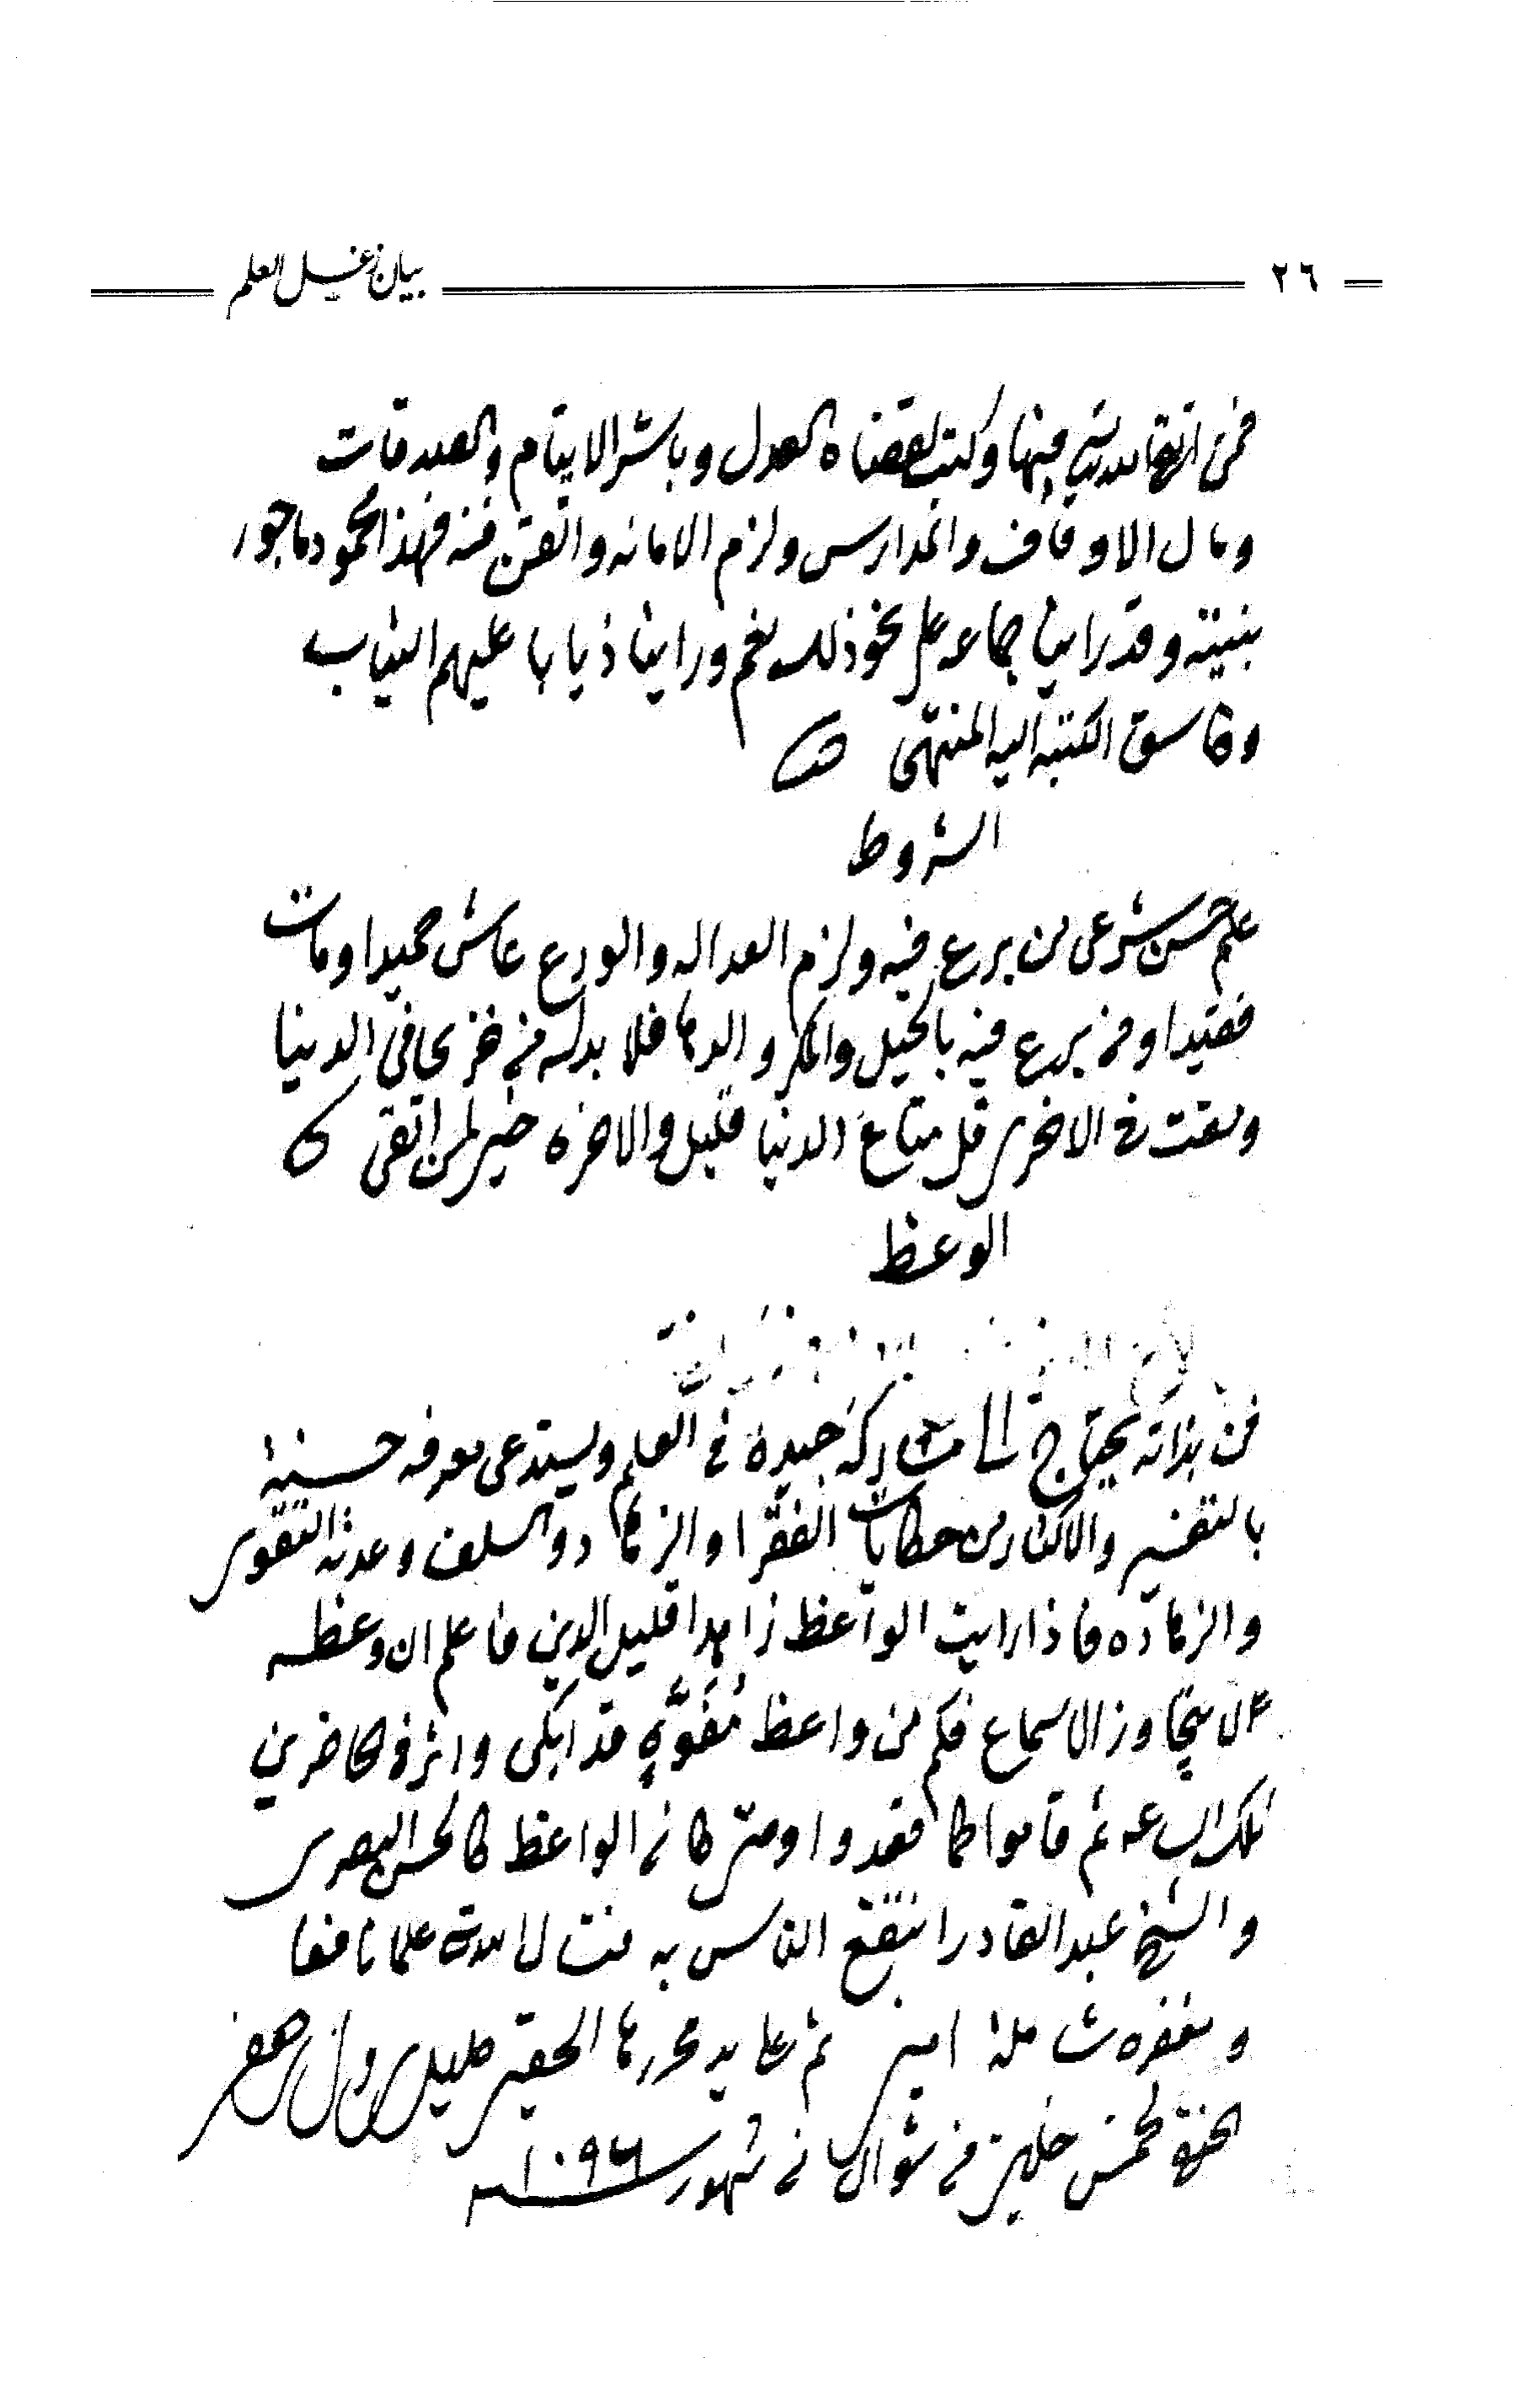 ٢٦ بيان زغل العلم
فمن اتقى الله فيها وكتب لقضاه العدل وباشر الايتام والصدقات
ومال الاوقاف والمدارس ولزم الامانه واتقن فنه فهذا محمود ماجور
بنيته وقد راينا جماعه على نحو ذلك نعم وراينا ذيابا عليهم الثياب
وفاسق الكتبه اليه المنتهى
الشروط
علم حسن شرعى من برع فيه ولزم العداله والورع عاش حميدا ومات
فقيدا ومن برع فيه بالحيل والمكر والدها فلا بد له من خزى فى الدنيا
ومقت فى الاخرى قل متاع الدنيا قليل والاخره خير لمن اتقى
الوعظ
فن بذاته يحتاج الى مشاركة جيدة فى العلم ويستدعى معرفه حسنة
بالتفسير والاكثار من حكايات الفقرا والزهاد والسلف وعدته التقوى
والزهاده فاذا رايت الواعظ زاهدا قليل الدين فاعلم ان وعظه
لا يتجاوز الاسماع فكم من واعظ مُفَوَّهٍ قد ابكى واثر فى الحاضرين
تلك الساعه ثم قاموا كما قعدوا ومتى كان الواعظ كالحسن البصرى
والشيخ عبد القادر انتفع الناس به فنسال الله علما نافعا
ومغفره شاملة امين تم على يد محررها الحقير خليل
الحنفى لخمس خلين من شوال من شهور سنة ١٠٩٦